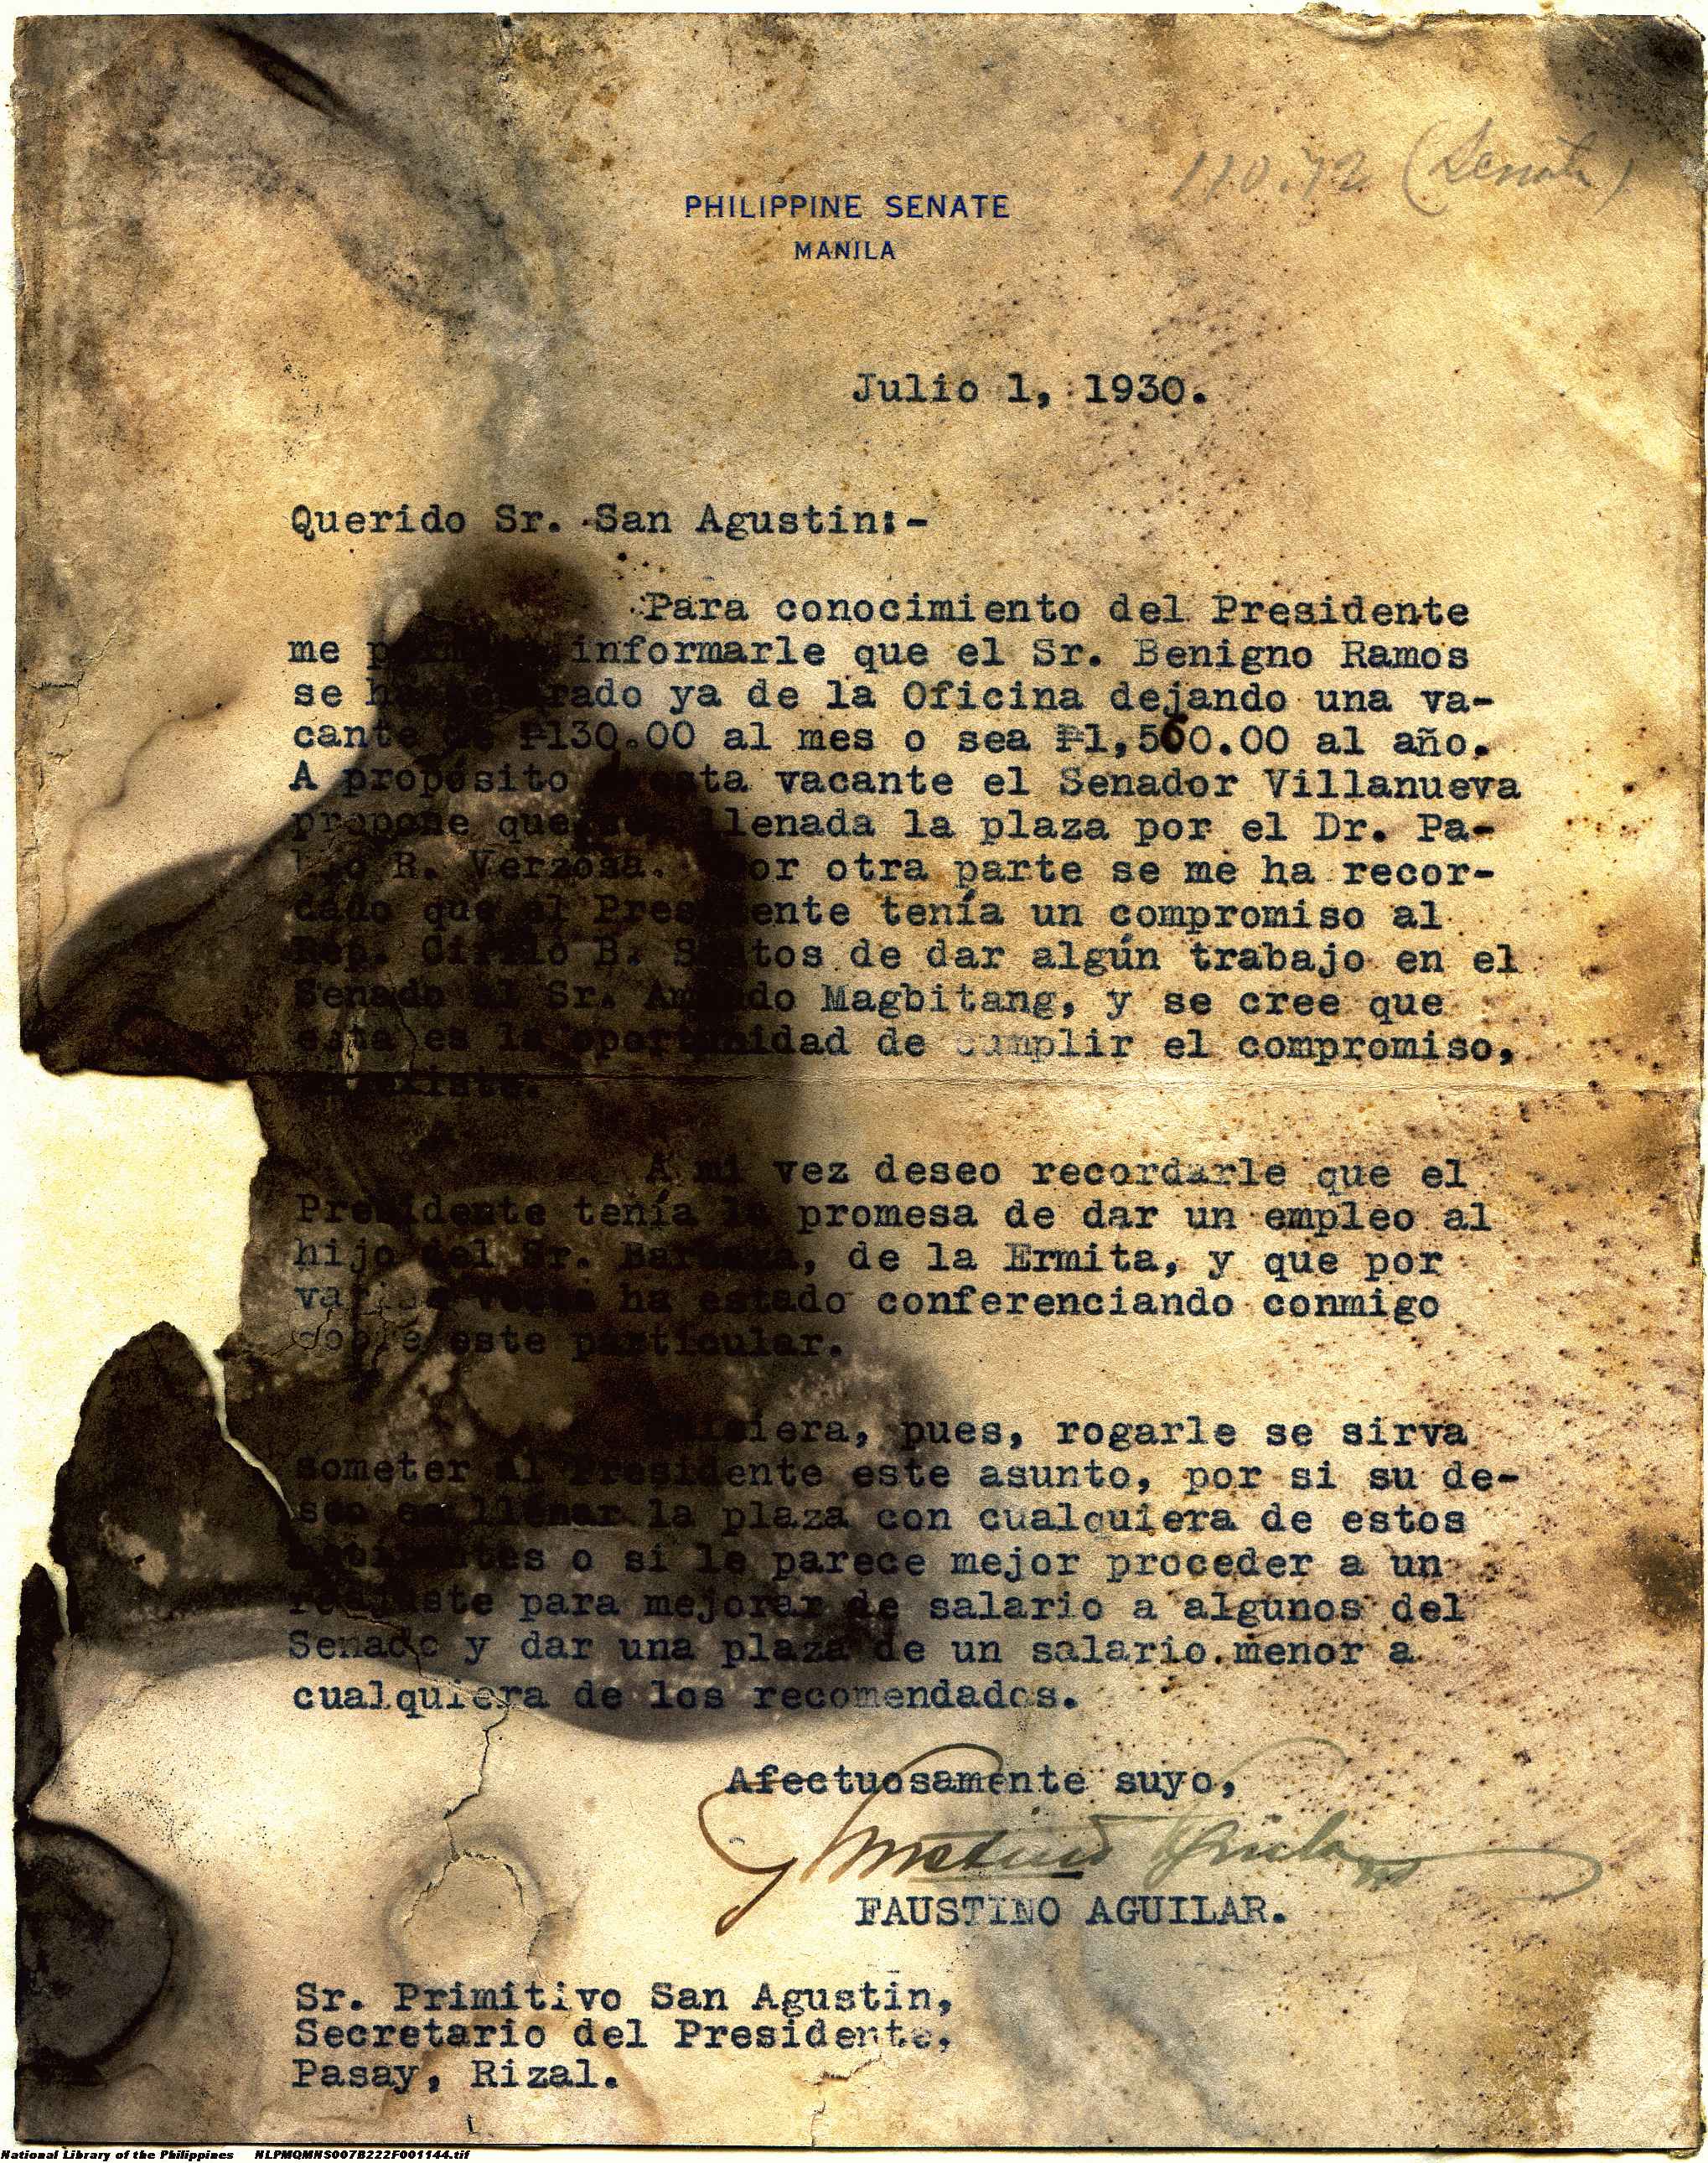 110.72 (Senate)
PHILIPPINE SENATE
MANILA
Julio 1, 1930.
Querido Sr. San Agustin:-
Para conocimiento del Presidente
me permito informarle que el Sr. Benigno Ramos
se ha separado ya de la Oficina dejando una va-
cante de ₱130.00 al mes o sea ₱1,560.00 al año.
A propósito de esta vacante el Senador Villanueva
propone que sea llenada la plaza por el Dr. Pa-
blo R. Verzosa. Por otra parte se me ha recor-
dado que el Presidente tenía un compromiso al
Rep. Cirilo B. Santos de dar algún trabajo en el
Senado al Sr. Amando Magbitang, y se cree que
esta es la oportunidad de cumplir el compromiso,
si existe.
A mi vez deseo recordarle que el
Presidente tenía la promesa de dar un empleo al
hijo del Sr. de la Ermita, y que por
varias veces ha estado conferenciando conmigo
sobre este particular.
Quisiera, pues, rogarle se sirva
someter al Presidente este asunto, por si su de-
seo es llenar la plaza con cualquiera de estos
o si le parece mejor proceder a un
reajuste para mejorar de salario a algunos del
Senado y dar una plaza de un salario menor a
cualquiera de los recomendados.
Afectuosamente suyo,
Faustino Aguilar
FAUSTINO AGUILAR.
Sr. Primitivo San Agustin,
Secretario del Presidente,
Pasay, Rizal.
National Library of the Philippines NLPMQMNS007B222F001144.tif